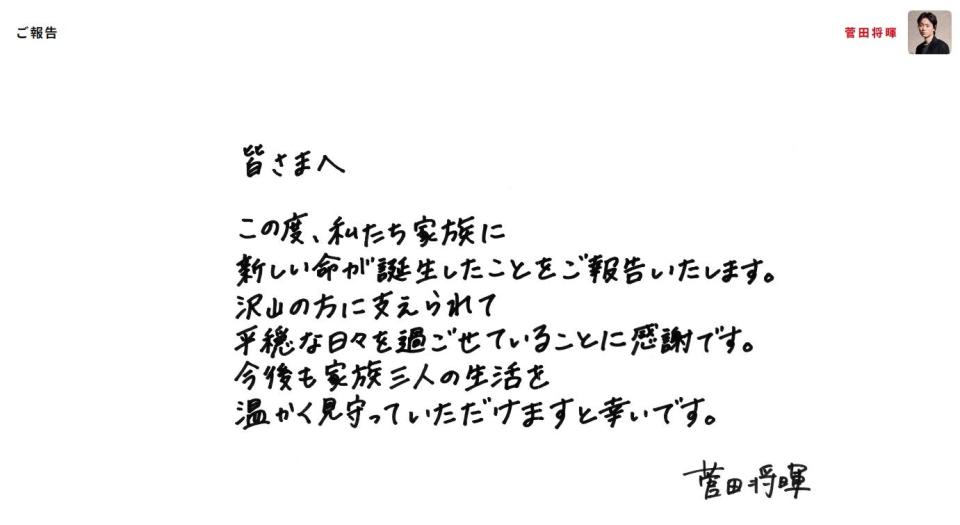 ご報告
菅田将暉
皆さまへ
この度、私たち家族に
新しい命が誕生したことをご報告いたします。
沢山の方に支えられて
平穏な日々を過ごせていることに感謝です。
今後も家族三人の生活を
温かく見守っていただけますと幸いです。
菅田将暉